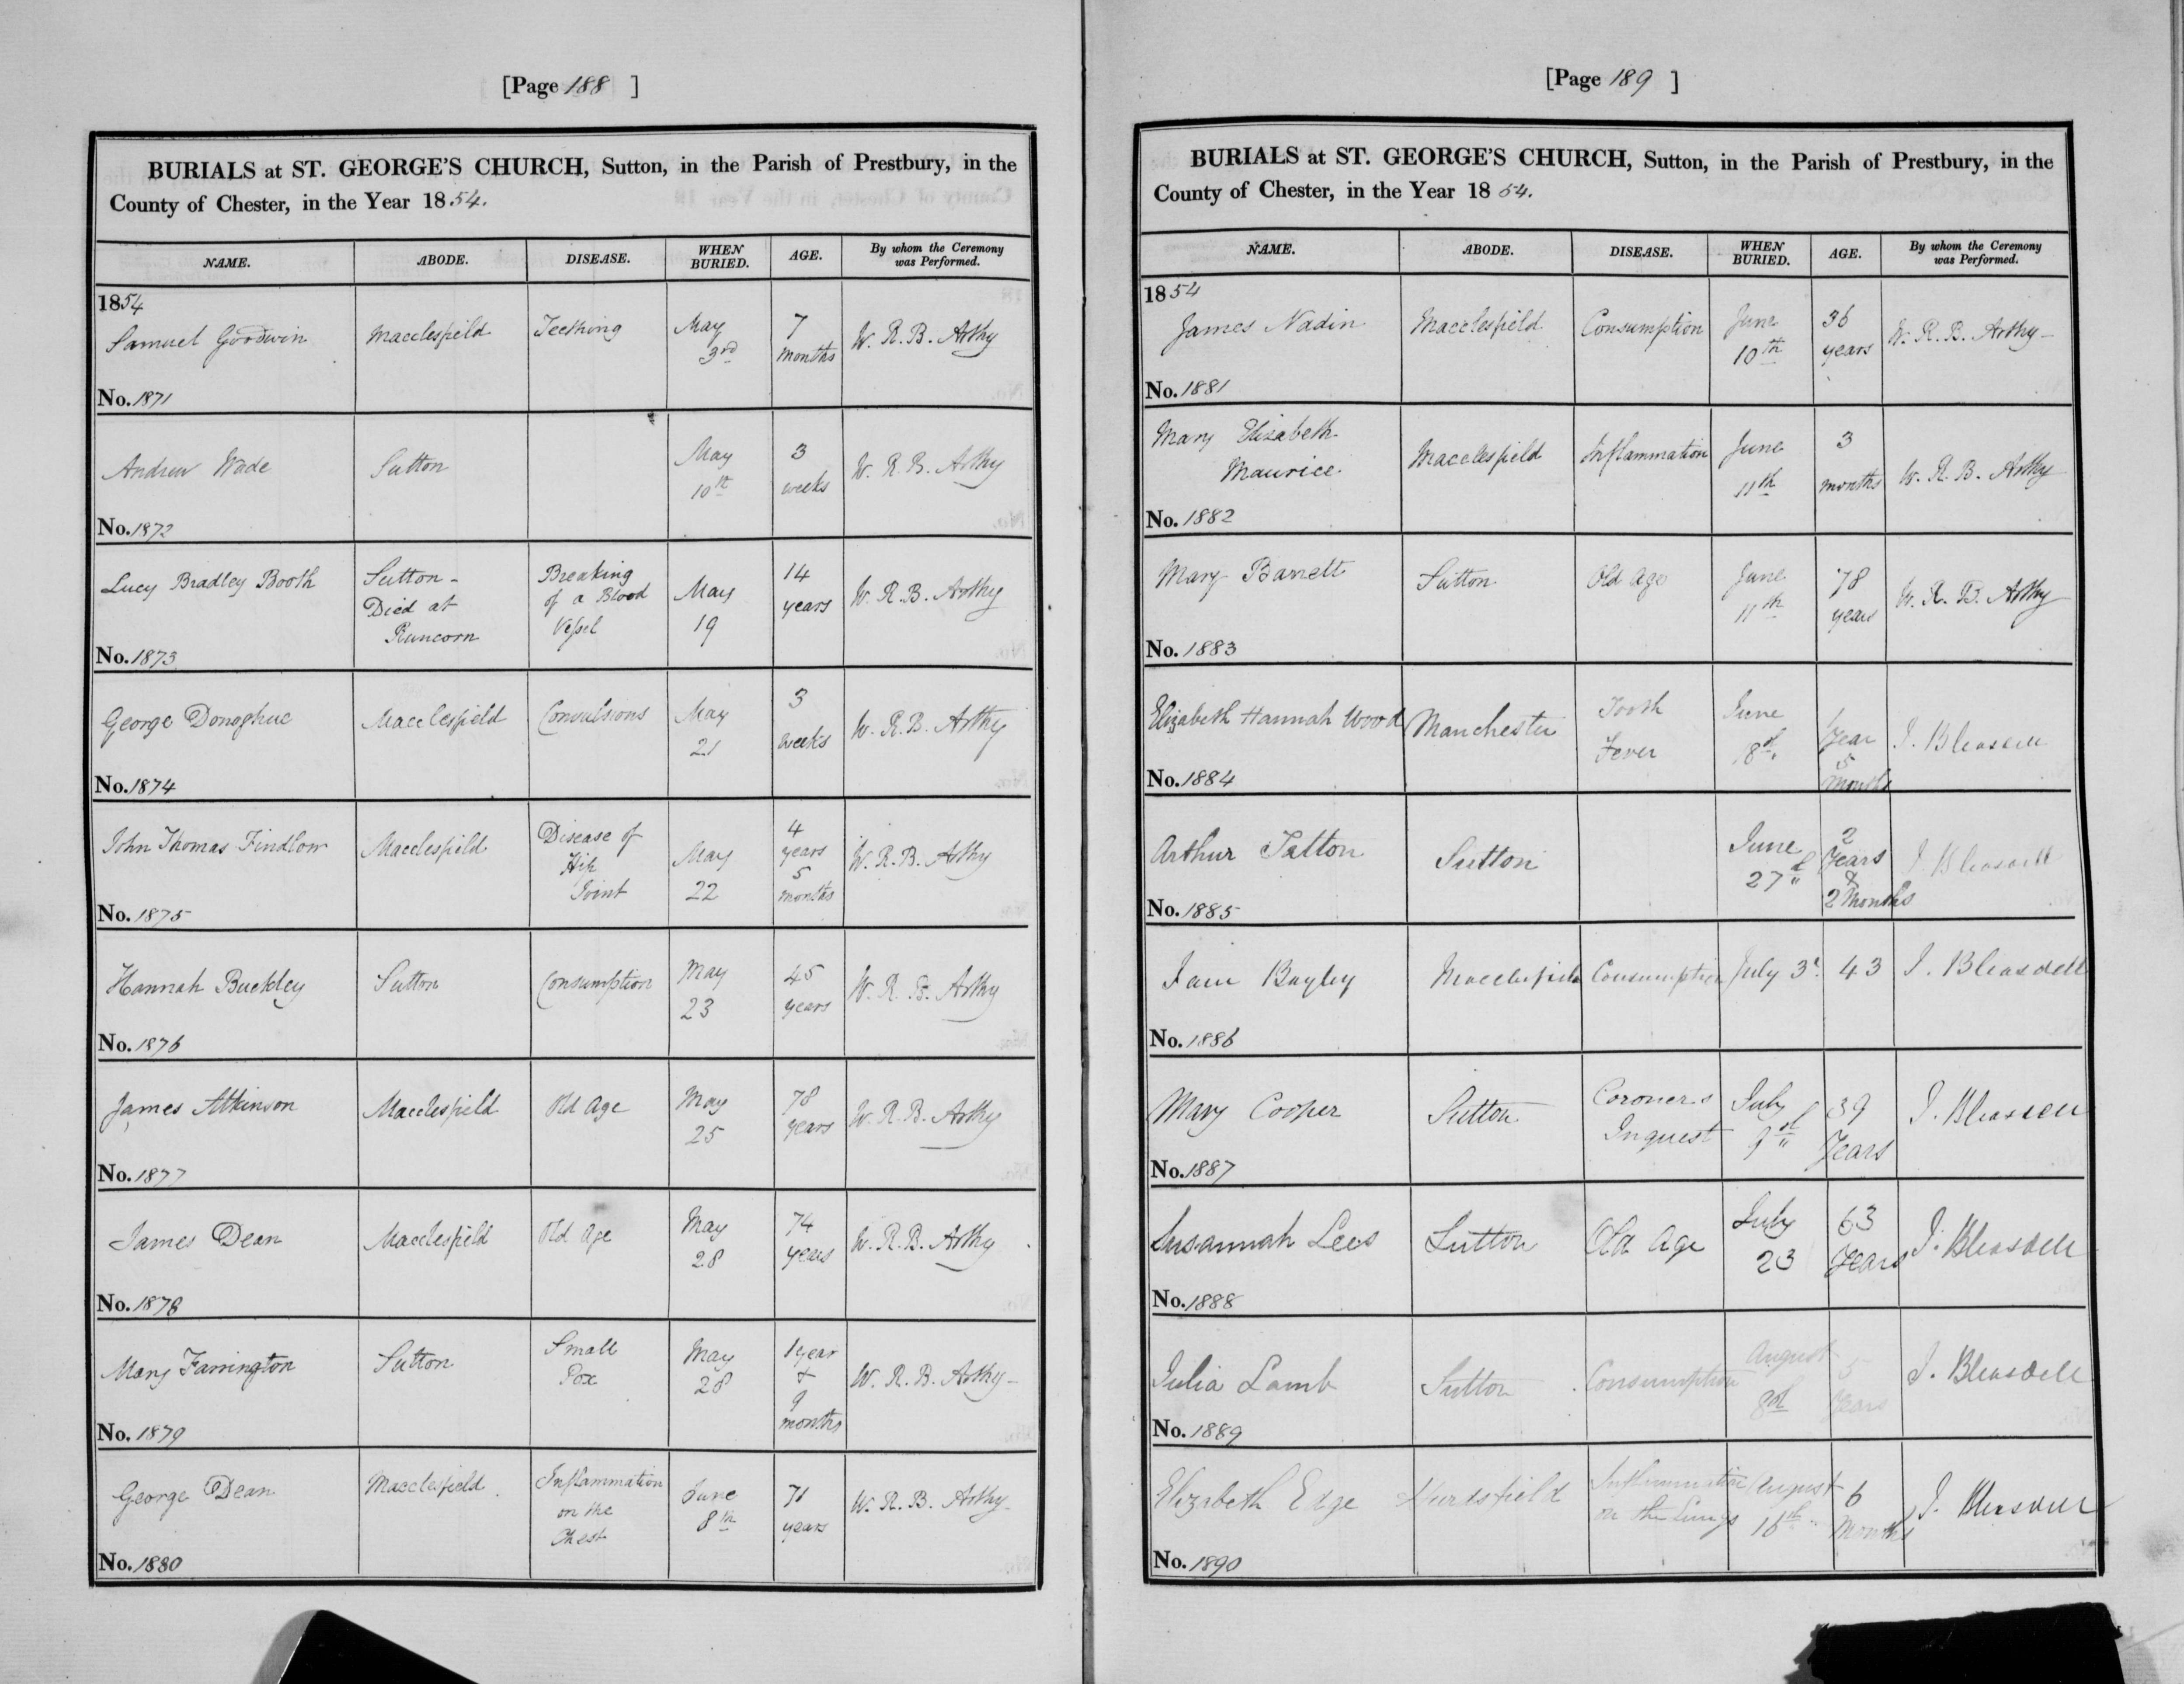 [Page 188 ]
BURIALS at ST. GEORGE'S CHURCH, Sutton, in the Parish of Prestbury, in the
County of Chester, in the Year 1854.
NAME. ABODE. DISEASE. WHEN BURIED. AGE. By whom the Ceremony was Performed.
1854
Samuel Goodwin Macclesfield Teething May 3rd 7 months W. R. B. Arthy
No. 1871
Andrew Wade Sutton May 10th 3 weeks W. R. B. Arthy
No. 1872
Lucy Bradley Booth Sutton - Died at Runcorn Breaking of a Blood Vessel May 19 14 years W. R. B. Arthy
No. 1873
George Donoghue Macclesfield Convulsions May 21 3 weeks W. R. B. Arthy
No. 1874
John Thomas Findlow Macclesfield Disease of Hip Joint May 22 4 years 5 months W. R. B. Arthy
No. 1875
Hannah Buckley Sutton Consumption May 23 45 years W. R. B. Arthy
No. 1876
James Atkinson Macclesfield Old Age May 25 78 years W. R. B. Arthy
No. 1877
James Dean Macclesfield Old Age May 28 74 years W. R. B. Arthy
No. 1878
Mary Farrington Sutton Small Pox May 28 1 year + 9 months W. R. B. Arthy
No. 1879
George Dean Macclesfield Inflammation on the Chest June 8th 71 years W. R. B. Arthy
No. 1880
[Page 189 ]
BURIALS at ST. GEORGE'S CHURCH, Sutton, in the Parish of Prestbury, in the
County of Chester, in the Year 1854.
NAME. ABODE. DISEASE. WHEN BURIED. AGE. By whom the Ceremony was Performed.
1854
James Nadin Macclesfield Consumption June 10th 36 years W. R. B. Arthy
No. 1881
Mary Elizabeth Maurice Macclesfield Inflammation June 11th 3 months W. R. B. Arthy
No. 1882
Mary Barrett Sutton Old Age June 11th 78 years W. R. B. Arthy
No. 1883
Elizabeth Hannah Wood Manchester Tooth Fever June 18th 1 Year 5 Months J. Bleasdell
No. 1884
Arthur Tatton Sutton June 27th 2 Years & 2 Months J. Bleasdell
No. 1885
Jane Bayley Macclesfield Consumption July 3d 43 J. Bleasdell
No. 1886
Mary Cooper Sutton Coroners Inquest July 9th 39 Years J. Bleasdell
No. 1887
Susannah Lees Sutton Old Age July 23 63 Years J. Bleasdell
No. 1888
Julia Lamb Sutton Consumption August 8th 5 Years J. Bleasdell
No. 1889
Elizabeth Edge Hurdsfield Inflammation on the Lungs August 16th 6 Months J. Bleasdell
No. 1890